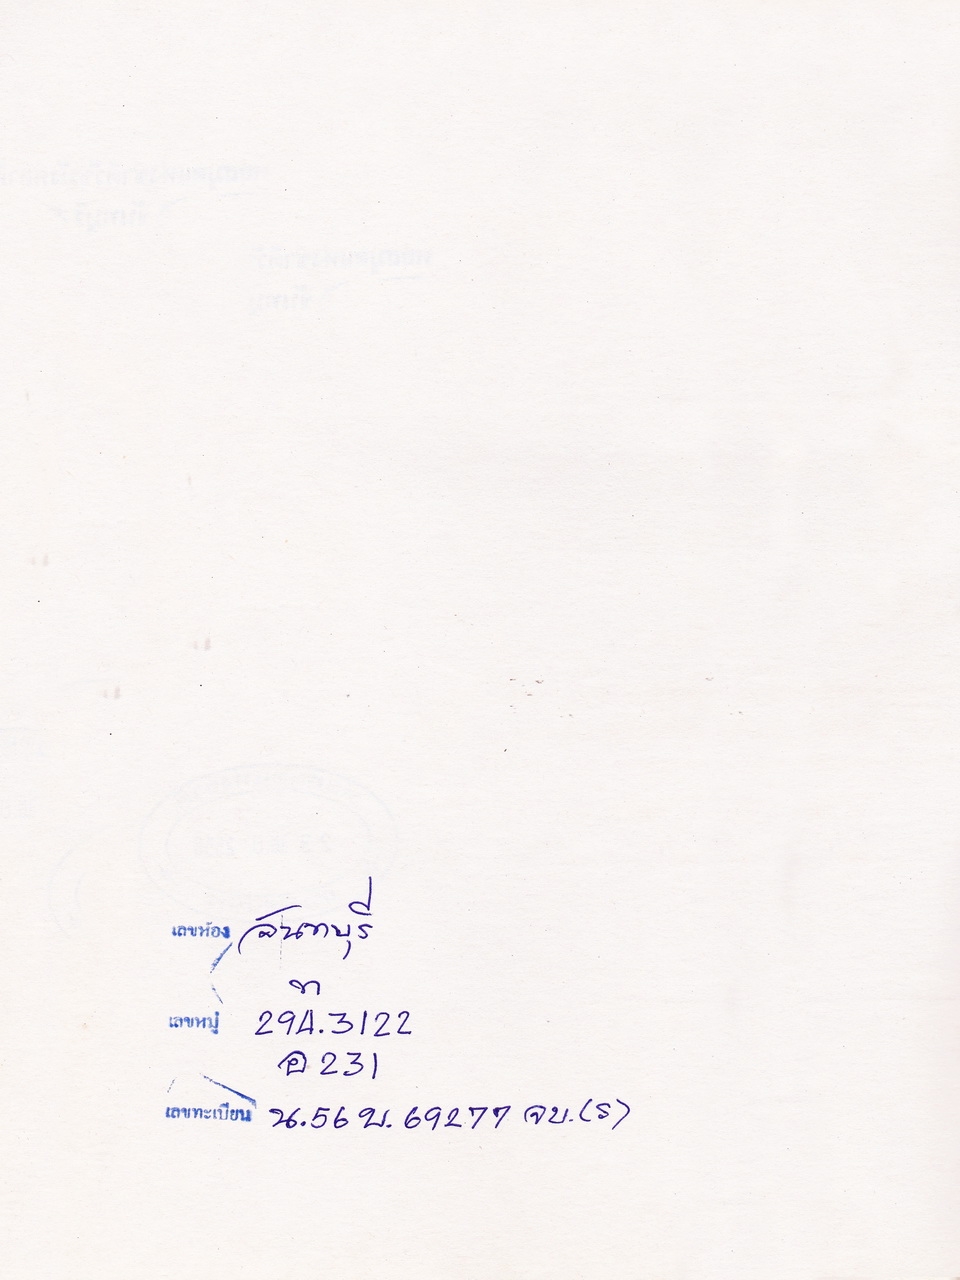 เลขห้อง จันทบุรี
ท
เลขหมู่ 294.3122
อ 231
เลขทะเบียน น.56 บ. 69277 จบ.(ร)